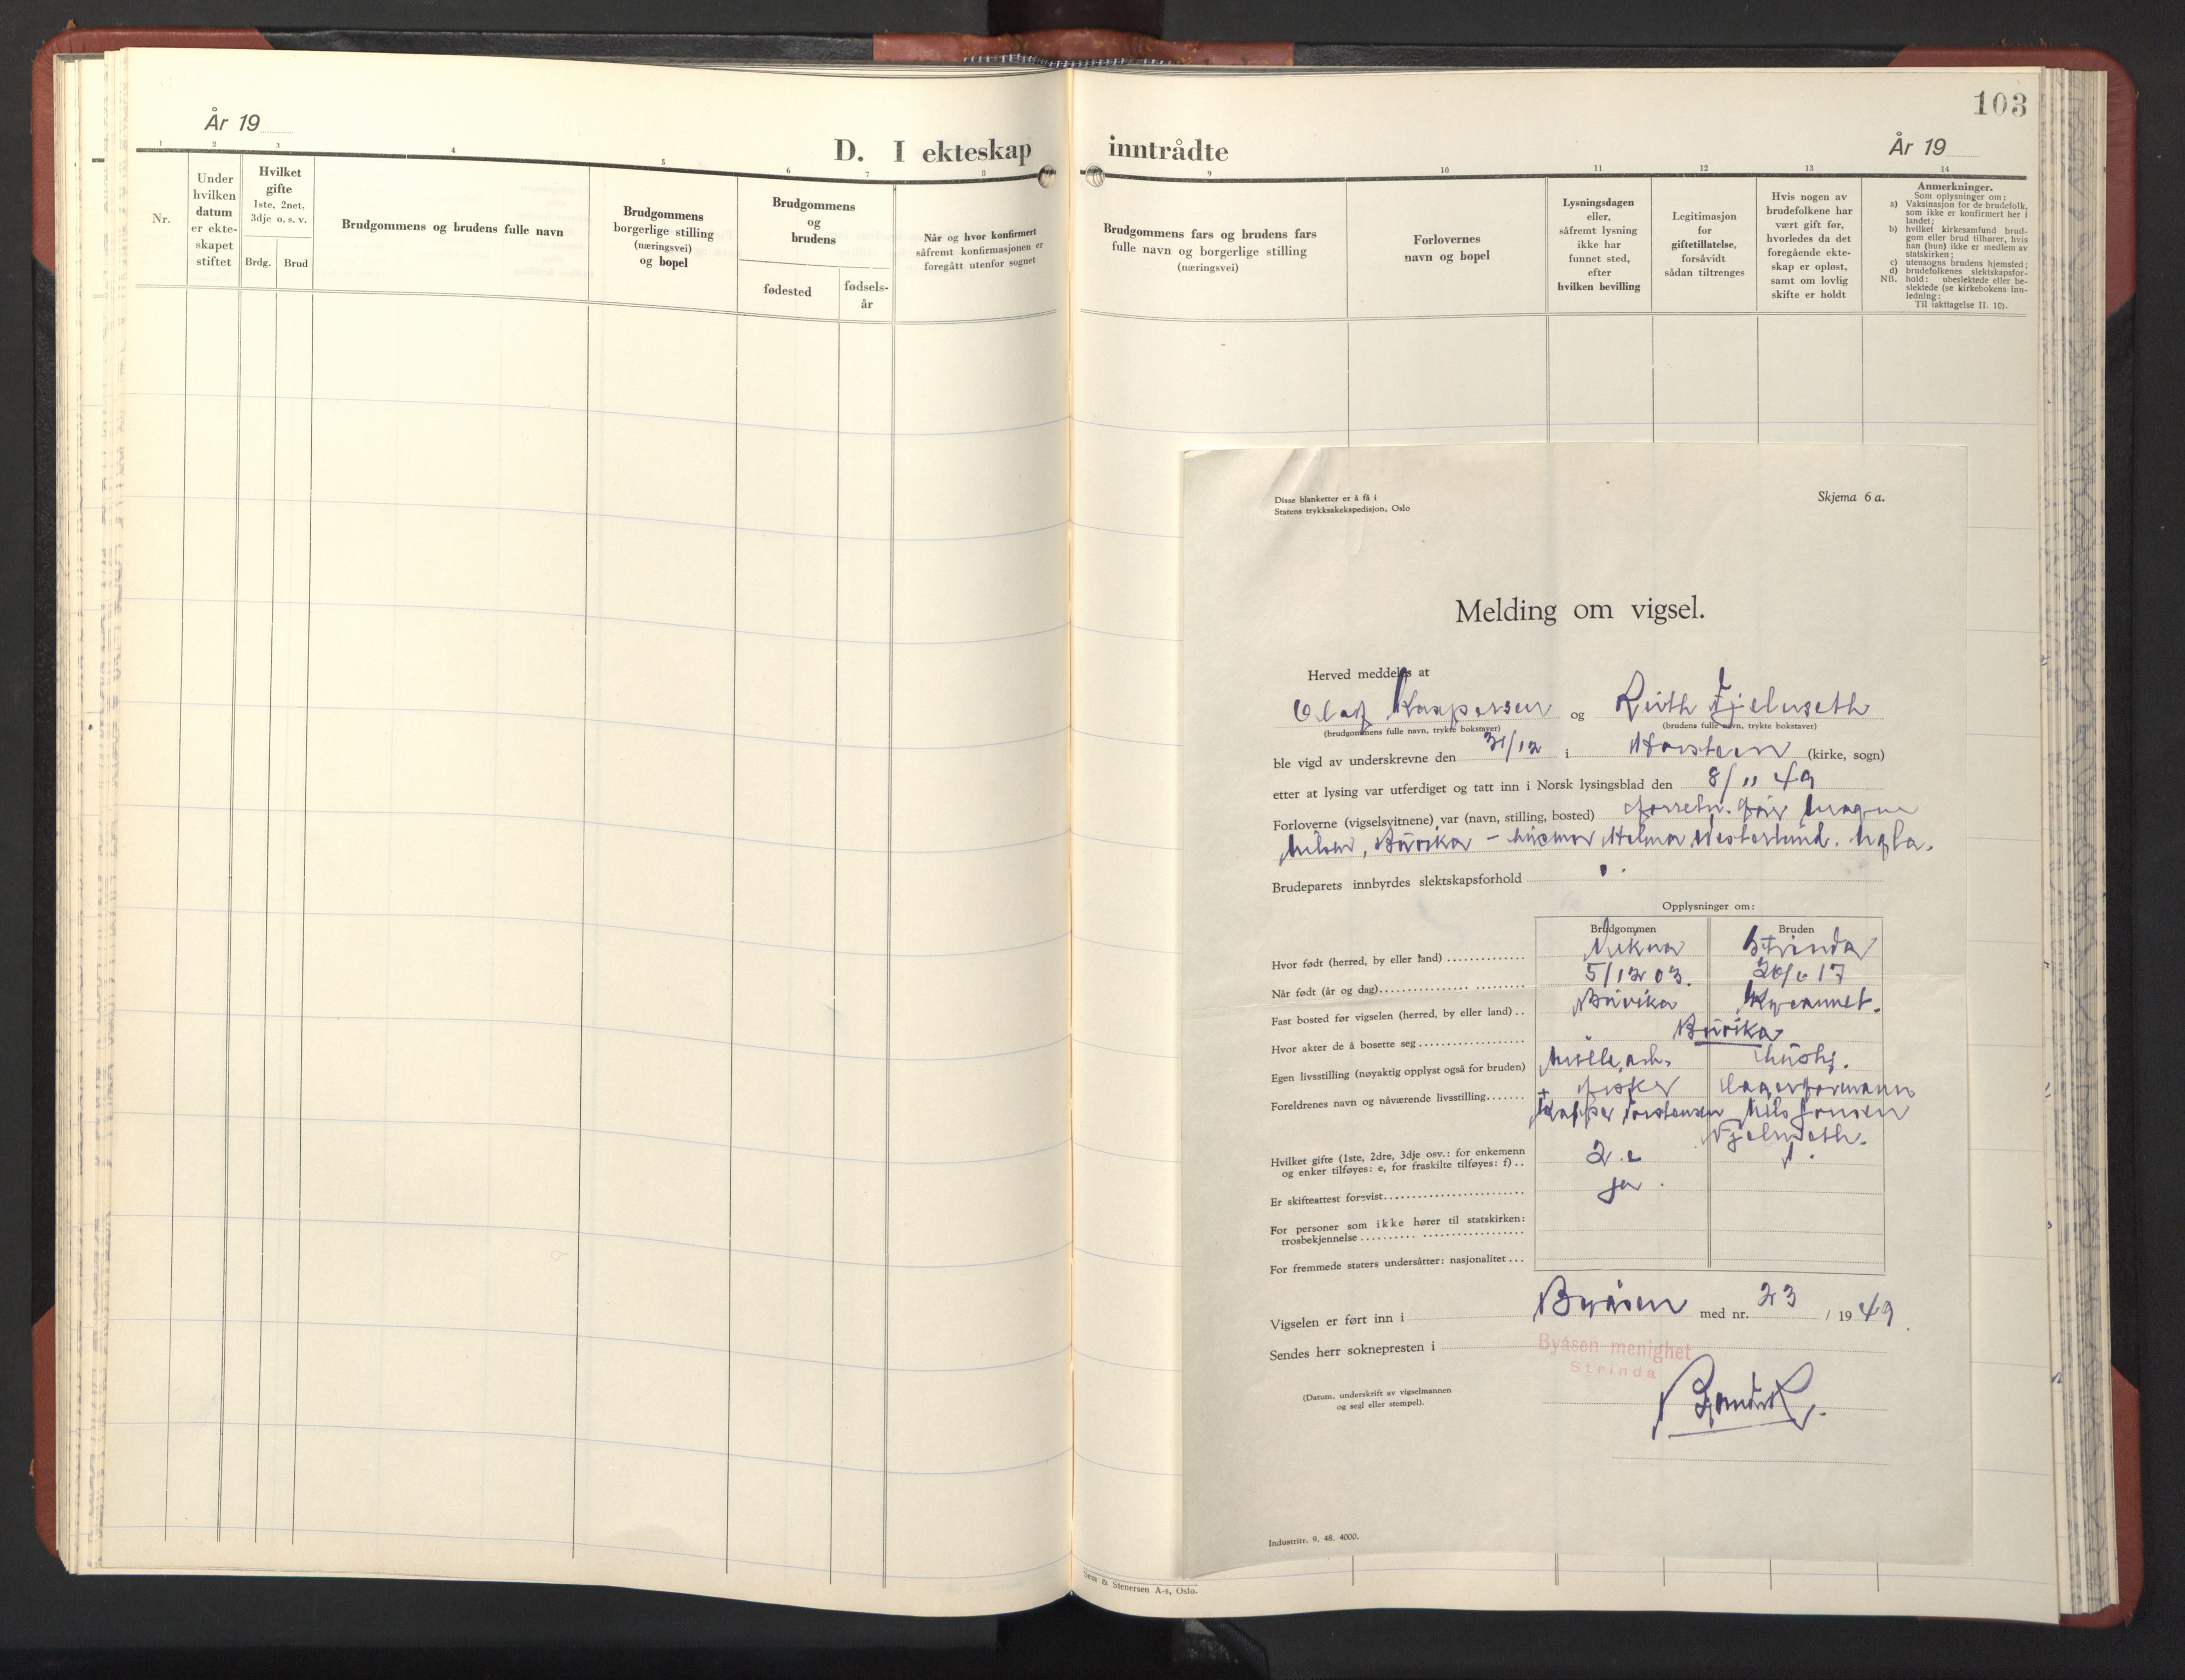 År 19
D. I ekteskap
1 2 3 4 5 6 7 8
Nr.
Under
hvilken
datum
er ekte-
skapet
stiftet
Hvilket
gifte
1ste, 2net,
3dje o. s. v.
Brdg. Brud
Brudgommens og brudens fulle navn
Brudgommens
borgerlige stilling
(næringsvei)
og bopel
Brudgommens
og
brudens
fødested
fødsels-
år
Når og hvor konfirmert
såfremt konfirmasjonen er
foregått utenfor sognet
103
inntrådte
År 19
9 10 11 12 13 14
Brudgommens fars og brudens fars
fulle navn og borgerlige stilling
(næringsvei)
Forlovernes
navn og bopel
Lysningsdagen
eller,
såfremt lysning
ikke har
funnet sted,
efter
hvilken bevilling
Legitimasjon
for
giftetillatelse,
forsåvidt
sådan tiltrenges
Hvis nogen av
brudefolkene har
vært gift før,
hvorledes da det
foregående ekte-
skap er opløst,
samt om lovlig
skifte er holdt
Anmerkninger.
Som oplysninger om:
a) Vaksinasjon for de brudefolk,
som ikke er konfirmert her i
landet;
b) hvilket kirkesamfund brud-
gom eller brud tilhører, hvis
han (hun) ikke er medlem av
statskirken;
c) utensogns brudens hjemsted;
d) brudefolkenes slektskapsfor-
NB. hold: ubeslektede eller be-
slektede (se kirkebokens inn-
ledning:
Til iakttagelse II. 10).
Disse blanketter er å få i
Statens trykksakekspedisjon, Oslo
Skjema 6 a.
Melding om vigsel.
Herved meddeles at
Olaf Kaspersen og Ruth Fjelnseth
(brudgommens fulle navn, trykte bokstaver) (brudens fulle navn, trykte bokstaver)
ble vigd av underskrevne den 31/12 i Havstein (kirke, sogn)
etter at lysing var utferdiget og tatt inn i Norsk lysingsblad den 8/11 49
Forloverne (vigselsvitnene) var (navn, stilling, bosted) Magne
Nilsen, Buvika - husmor Helma Westerlund. Ugla.
Brudeparets innbyrdes slektskapsforhold
Opplysninger om:
Brudgommen Bruden
Hvor født (herred, by eller land) Strinda
Når født (år og dag) 5/12 03. 26/6 17
Fast bosted før vigselen (herred, by eller land) Buvika Kyvannet.
Hvor akter de å bosette seg Buvika
Egen livsstilling (nøyaktig opplyst også for bruden) Mølle, arb. hushj.
Foreldrenes navn og nåværende livsstilling + fisker Lagerformann
Kasper Torstensen Nils Jensen
Fjelnseth.
Hvilket gifte (1ste, 2dre, 3dje osv.: for enkemenn
og enker tilføyes: e, for fraskilte tilføyes: f) 2. e 1.
Er skifteattest forevist ja.
For personer som ikke hører til statskirken:
trosbekjennelse
For fremmede staters undersåtter: nasjonalitet
Vigselen er ført inn i Byåsen med nr. 23 / 19 49
Sendes herr soknepresten i
Byåsen menighet
Strinda
(Datum, underskrift av vigselmannen
og segl eller stempel).
Industritr. 9. 48. 4000.
Sem & Stenersen A-s, Oslo.